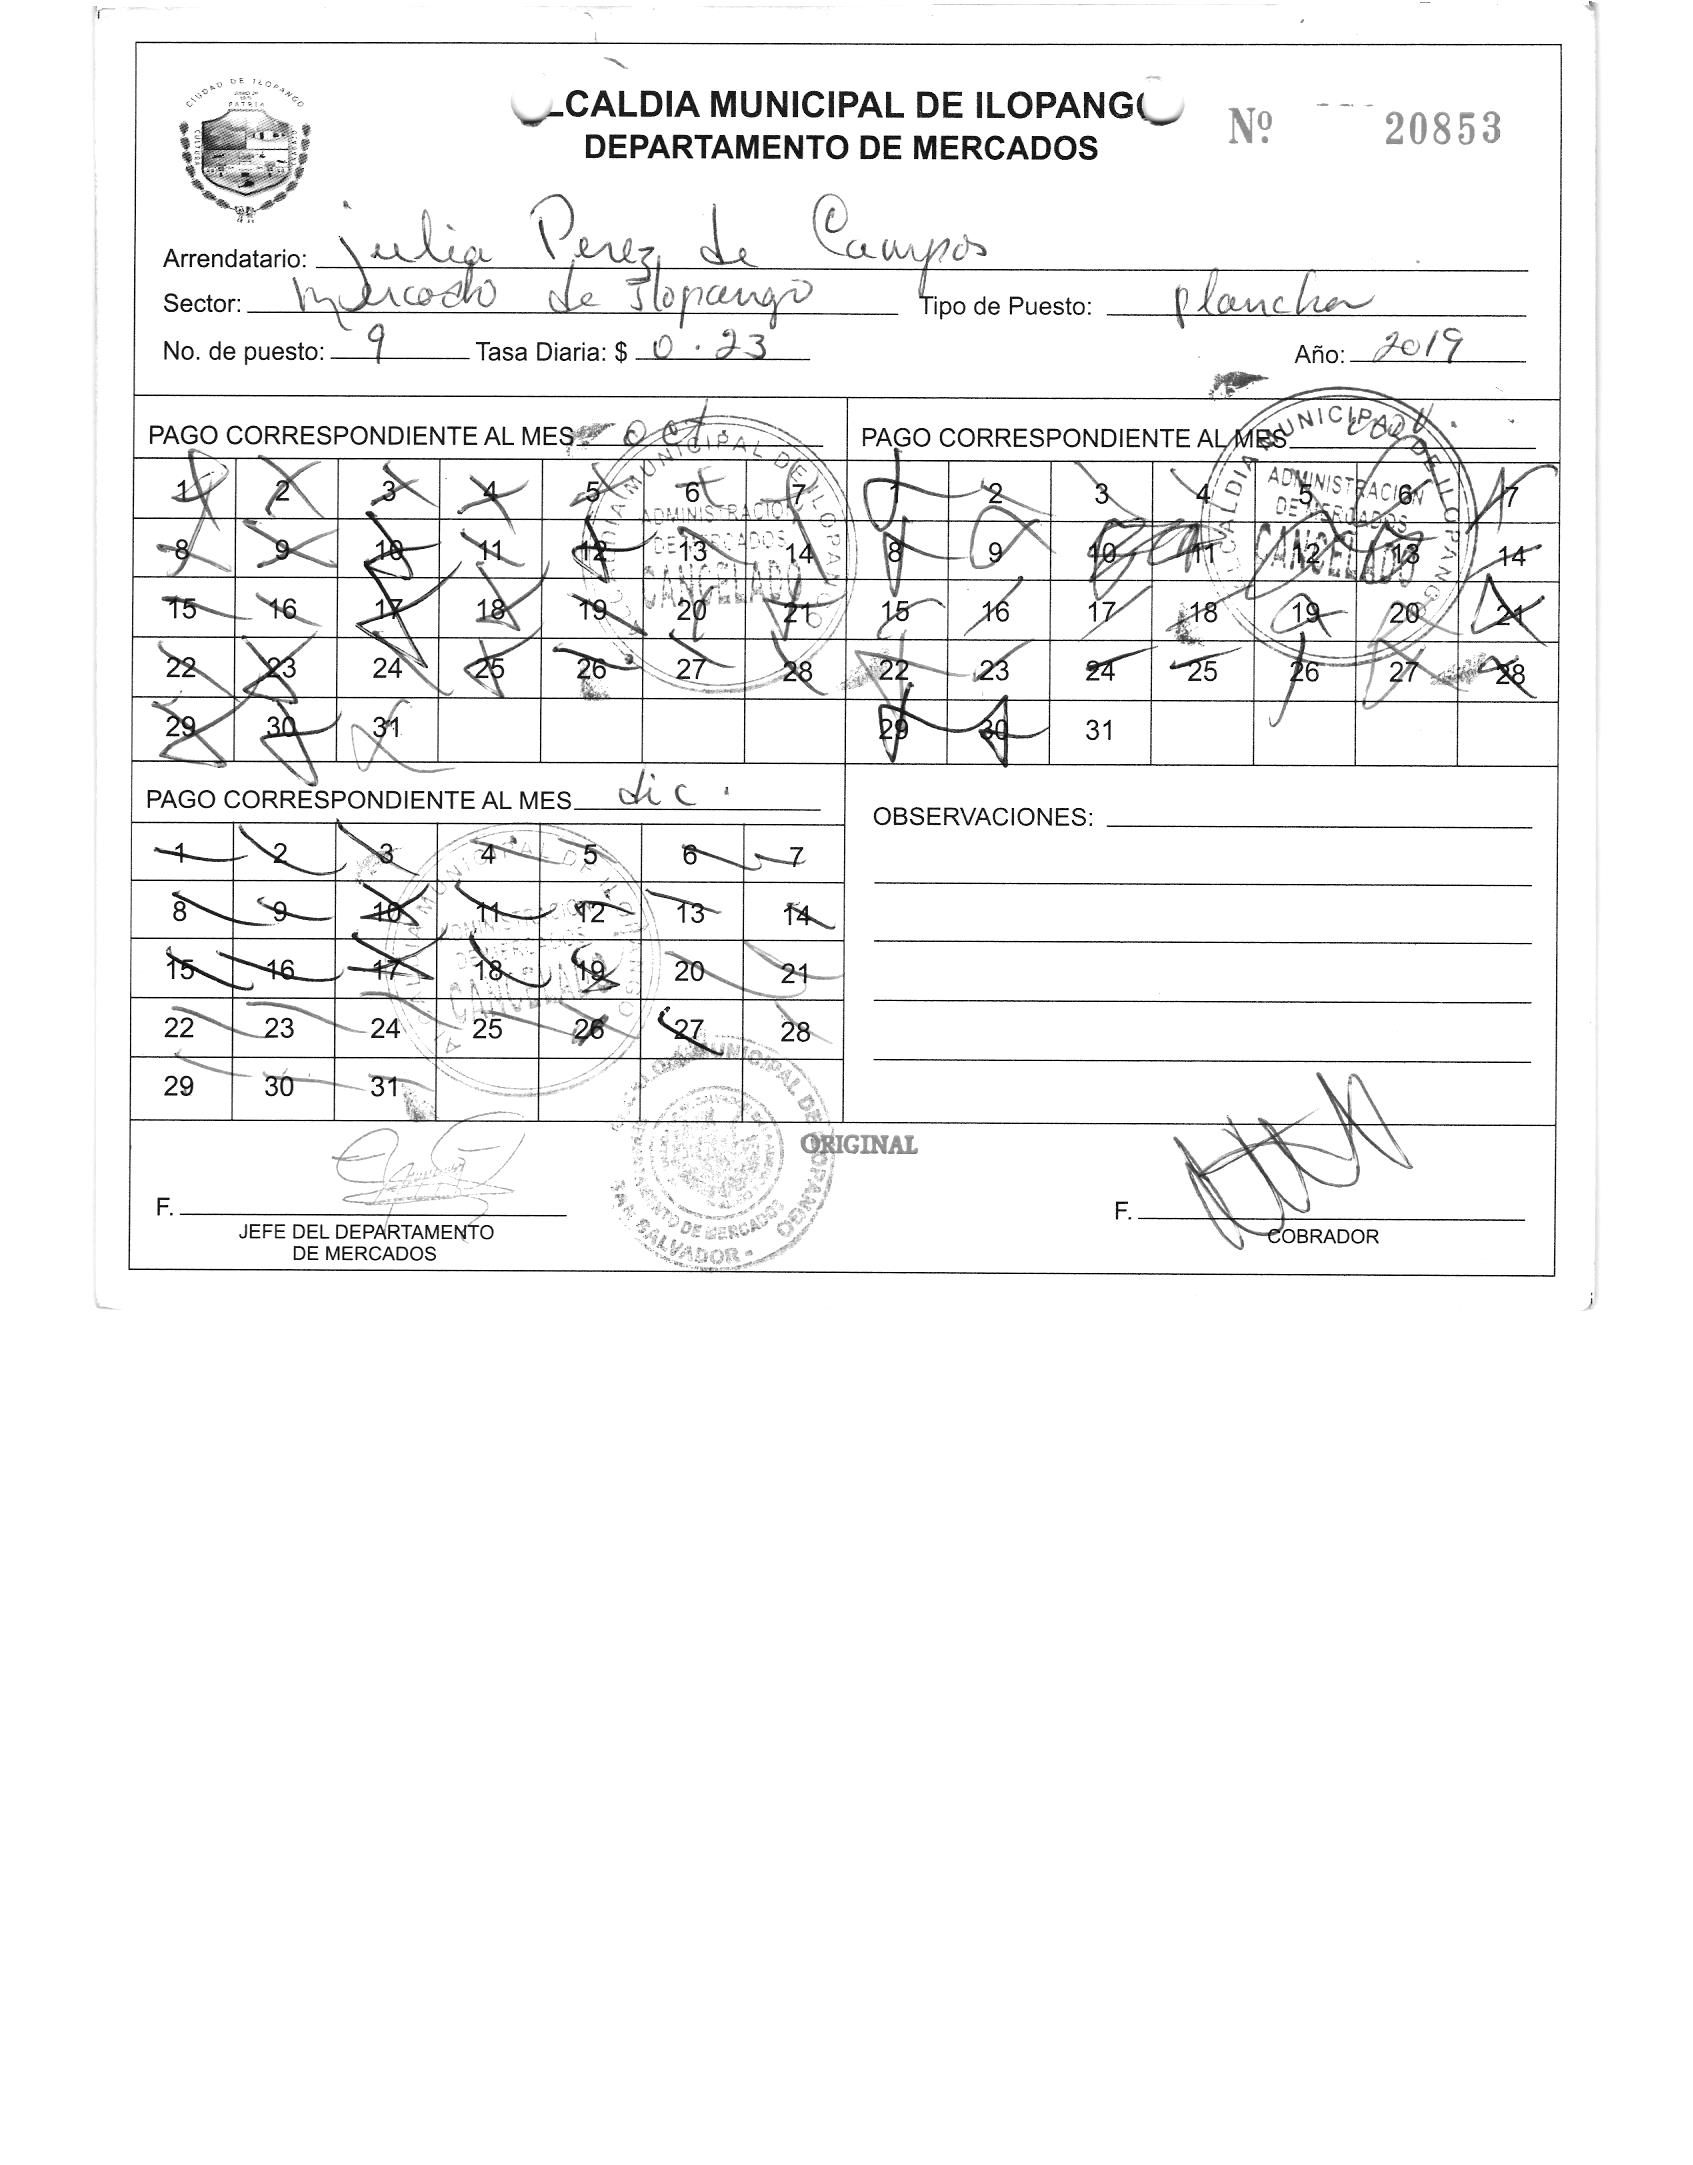 CIUDAD DE ILOPANGO
PATRIA
CULTURA
ALCALDIA MUNICIPAL DE ILOPANGO
DEPARTAMENTO DE MERCADOS
Nº 20853
Arrendatario: Julia Perez de Campos
Sector: Mercado de Ilopango Tipo de Puesto: Plancha
No. de puesto: 9 Tasa Diaria: $ 0.23 Año: 2019
PAGO CORRESPONDIENTE AL MES oct.
1 2 3 4 5 6 7
8 9 10 11 12 13 14
15 16 17 18 19 20 21
22 23 24 25 26 27 28
29 30 31
ALCALDIA MUNICIPAL DE ILOPANGO
ADMINISTRACION
DE MERCADOS
CANCELADO
PAGO CORRESPONDIENTE AL MES
1 2 3 4 5 6 7
8 9 10 11 12 13 14
15 16 17 18 19 20 21
22 23 24 25 26 27 28
29 30 31
ALCALDIA MUNICIPAL DE ILOPANGO
ADMINISTRACION
DE MERCADOS
CANCELADO
PAGO CORRESPONDIENTE AL MES dic.
1 2 3 4 5 6 7
8 9 10 11 12 13 14
15 16 17 18 19 20 21
22 23 24 25 26 27 28
29 30 31
ALCALDIA MUNICIPAL DE ILOPANGO
ADMINISTRACION
DE MERCADOS
CANCELADO
OBSERVACIONES:
MUNICIPAL DE ILOPANGO
DE MERCADOS
SAN SALVADOR
ORIGINAL
F.
JEFE DEL DEPARTAMENTO
DE MERCADOS
F.
COBRADOR